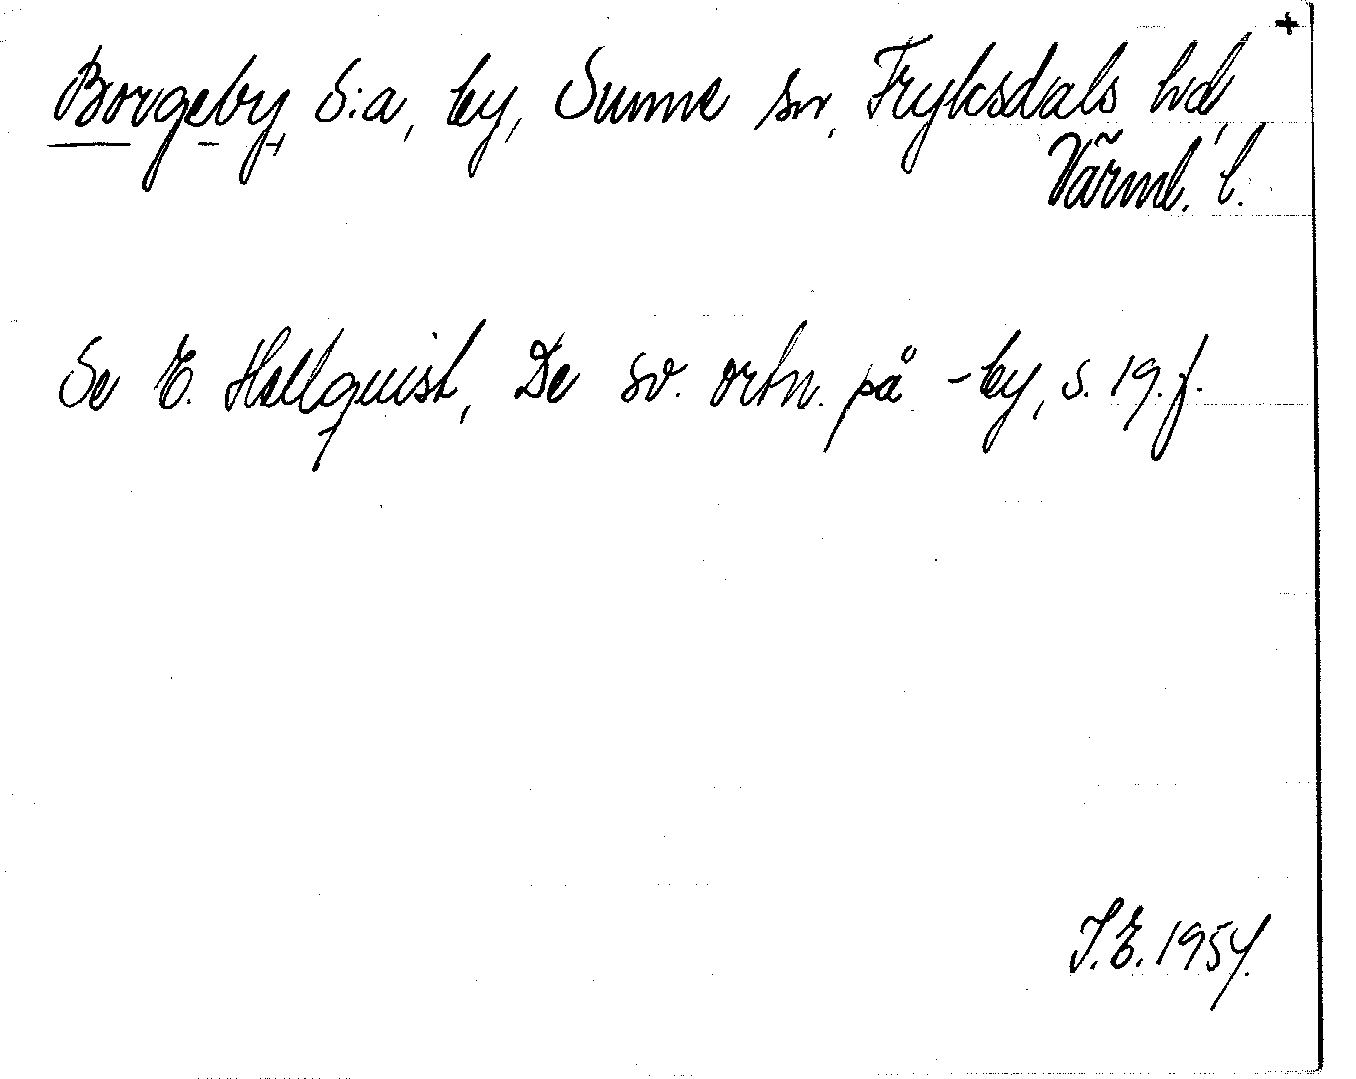 +
Borgeby, S:a, by, Sunne sn, Fryksdals hd,
Värml. l.
Se E. Hellquist, De sv. ortn. på -by, s. 19. f.
I.E. 1954.